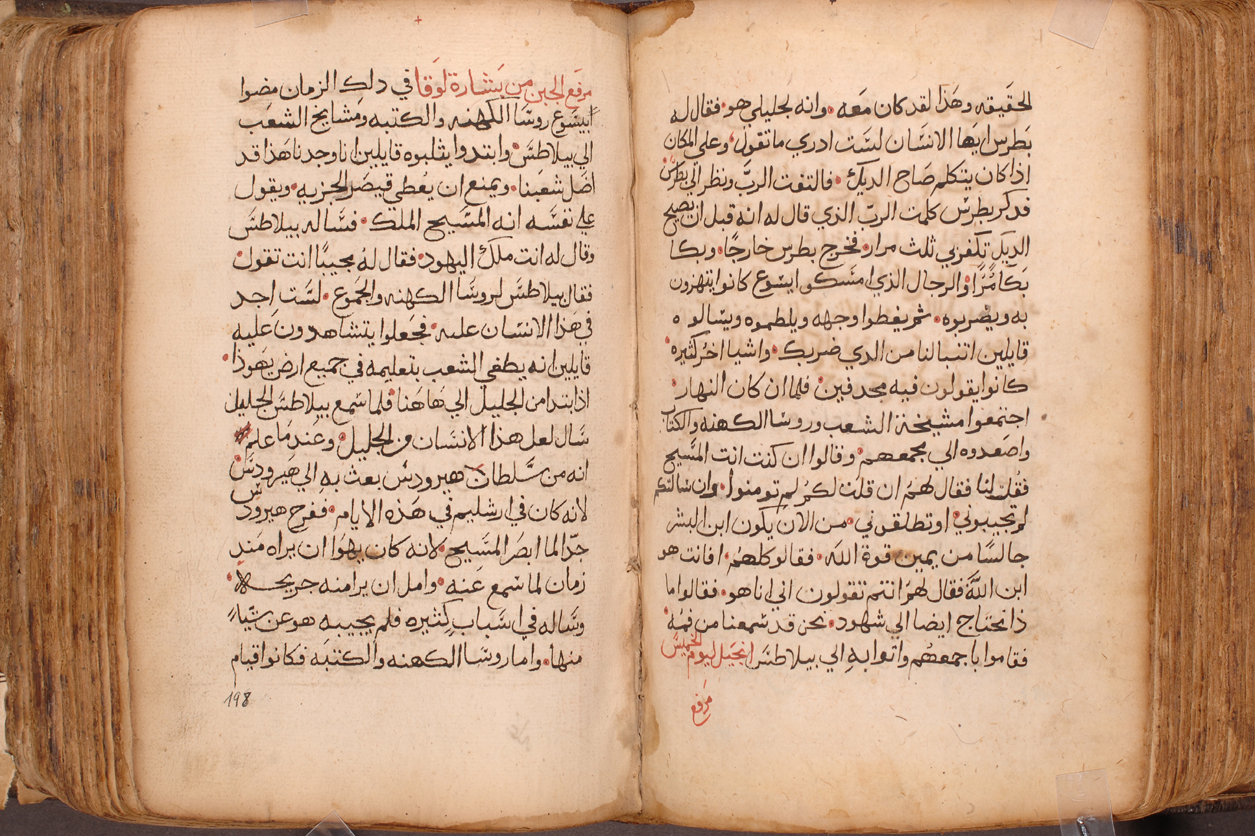 الحقيقه وهذا لقد كان معه وانه لجليلي هو فقال له
بطرس ايها الانسان لست ادري ما تقول وعلي المكان
اذ كان يتكلم صاح الديك فالتفت الرب ونظر الي بطرس
فدكر بطرس كلمت الرب الذي قال له انه قبل ان يصيح
الديك تكفر بي ثلث مرار فخرج بطرس خارجًا وبكا
بكا مُرًّا والرجال الذي امسكو ايسوع كانوا يتهزون
به ويضربوه ثم يغطوا وجهه ويلطموه ويسالوه
قايلين اتنبا لنا من الدي ضربك واشيا اخر كثيره
كانوا يقولون فيه مجدفين فلما ان كان النهار
اجتمعوا مشيخة الشعب وروسا الكهنه والكتاب
واصعدوه الي مجمعهم وقالوا ان كنت انت المسيح
فقل لنا فقال لهم ان قلت لكم لم تومنوا وان سالتكم
لم تجيبوني او تطلقوني من الان يكون ابن البشر
جالسا من يمين قوة الله فقالو كلهم افانت هو
ابن الله فقال لهم انتم تقولون اني انا هو فقالوا ما
ذا نحتاج ايضا الي شهود نحن قد سمعنا من فمه
فقاموا باجمعهم واتوا به الي بيلاطس انجيل ليوم الخميس
مرفع
مرفع الجبن من بشارة لوقا في دلك الزمان مضوا
ابيسوع روسا الكهنه والكتبه ومشايخ الشعب
الي بيلاطس وابتدوا يثلبوه قايلين انا وجدنا هذا قد
اضل شعبنا ويمنع ان يُعطي قيصر الجزيه ويقول
علي نفسه انه المسيح الملك فساله بيلاطس
وقال له انت ملك اليهود فقال له مجيبًا انت تقول
فقال بيلاطس لروسا الكهنه والجموع لست اجد
في هذا الانسان عله فجعلوا يتشاهدون عليه
قايلين انه يطغي الشعب بتعليمه في جميع ارض يهوذا
اذ ابتدا من الجليل الي هاهنا فلما سمع بيلاطس الجليل
سال لعل هذا الانسان من الجليل وعند ما علم
انه من سلطان هيرودس بعث به الي هيرودس
لانه كان في ارشليم في هذه الايام ففرح هيرودس
جدّا لما ابصر المسيح لانه كان يهوا ان يراه منذ
زمان لما سمع عنه وامل ان يرا منه جريحه
وساله في اسباب كثيره فلم يجيبه هو عن شياء
منها واما روسا الكهنه والكتبه فكانوا قيام
198